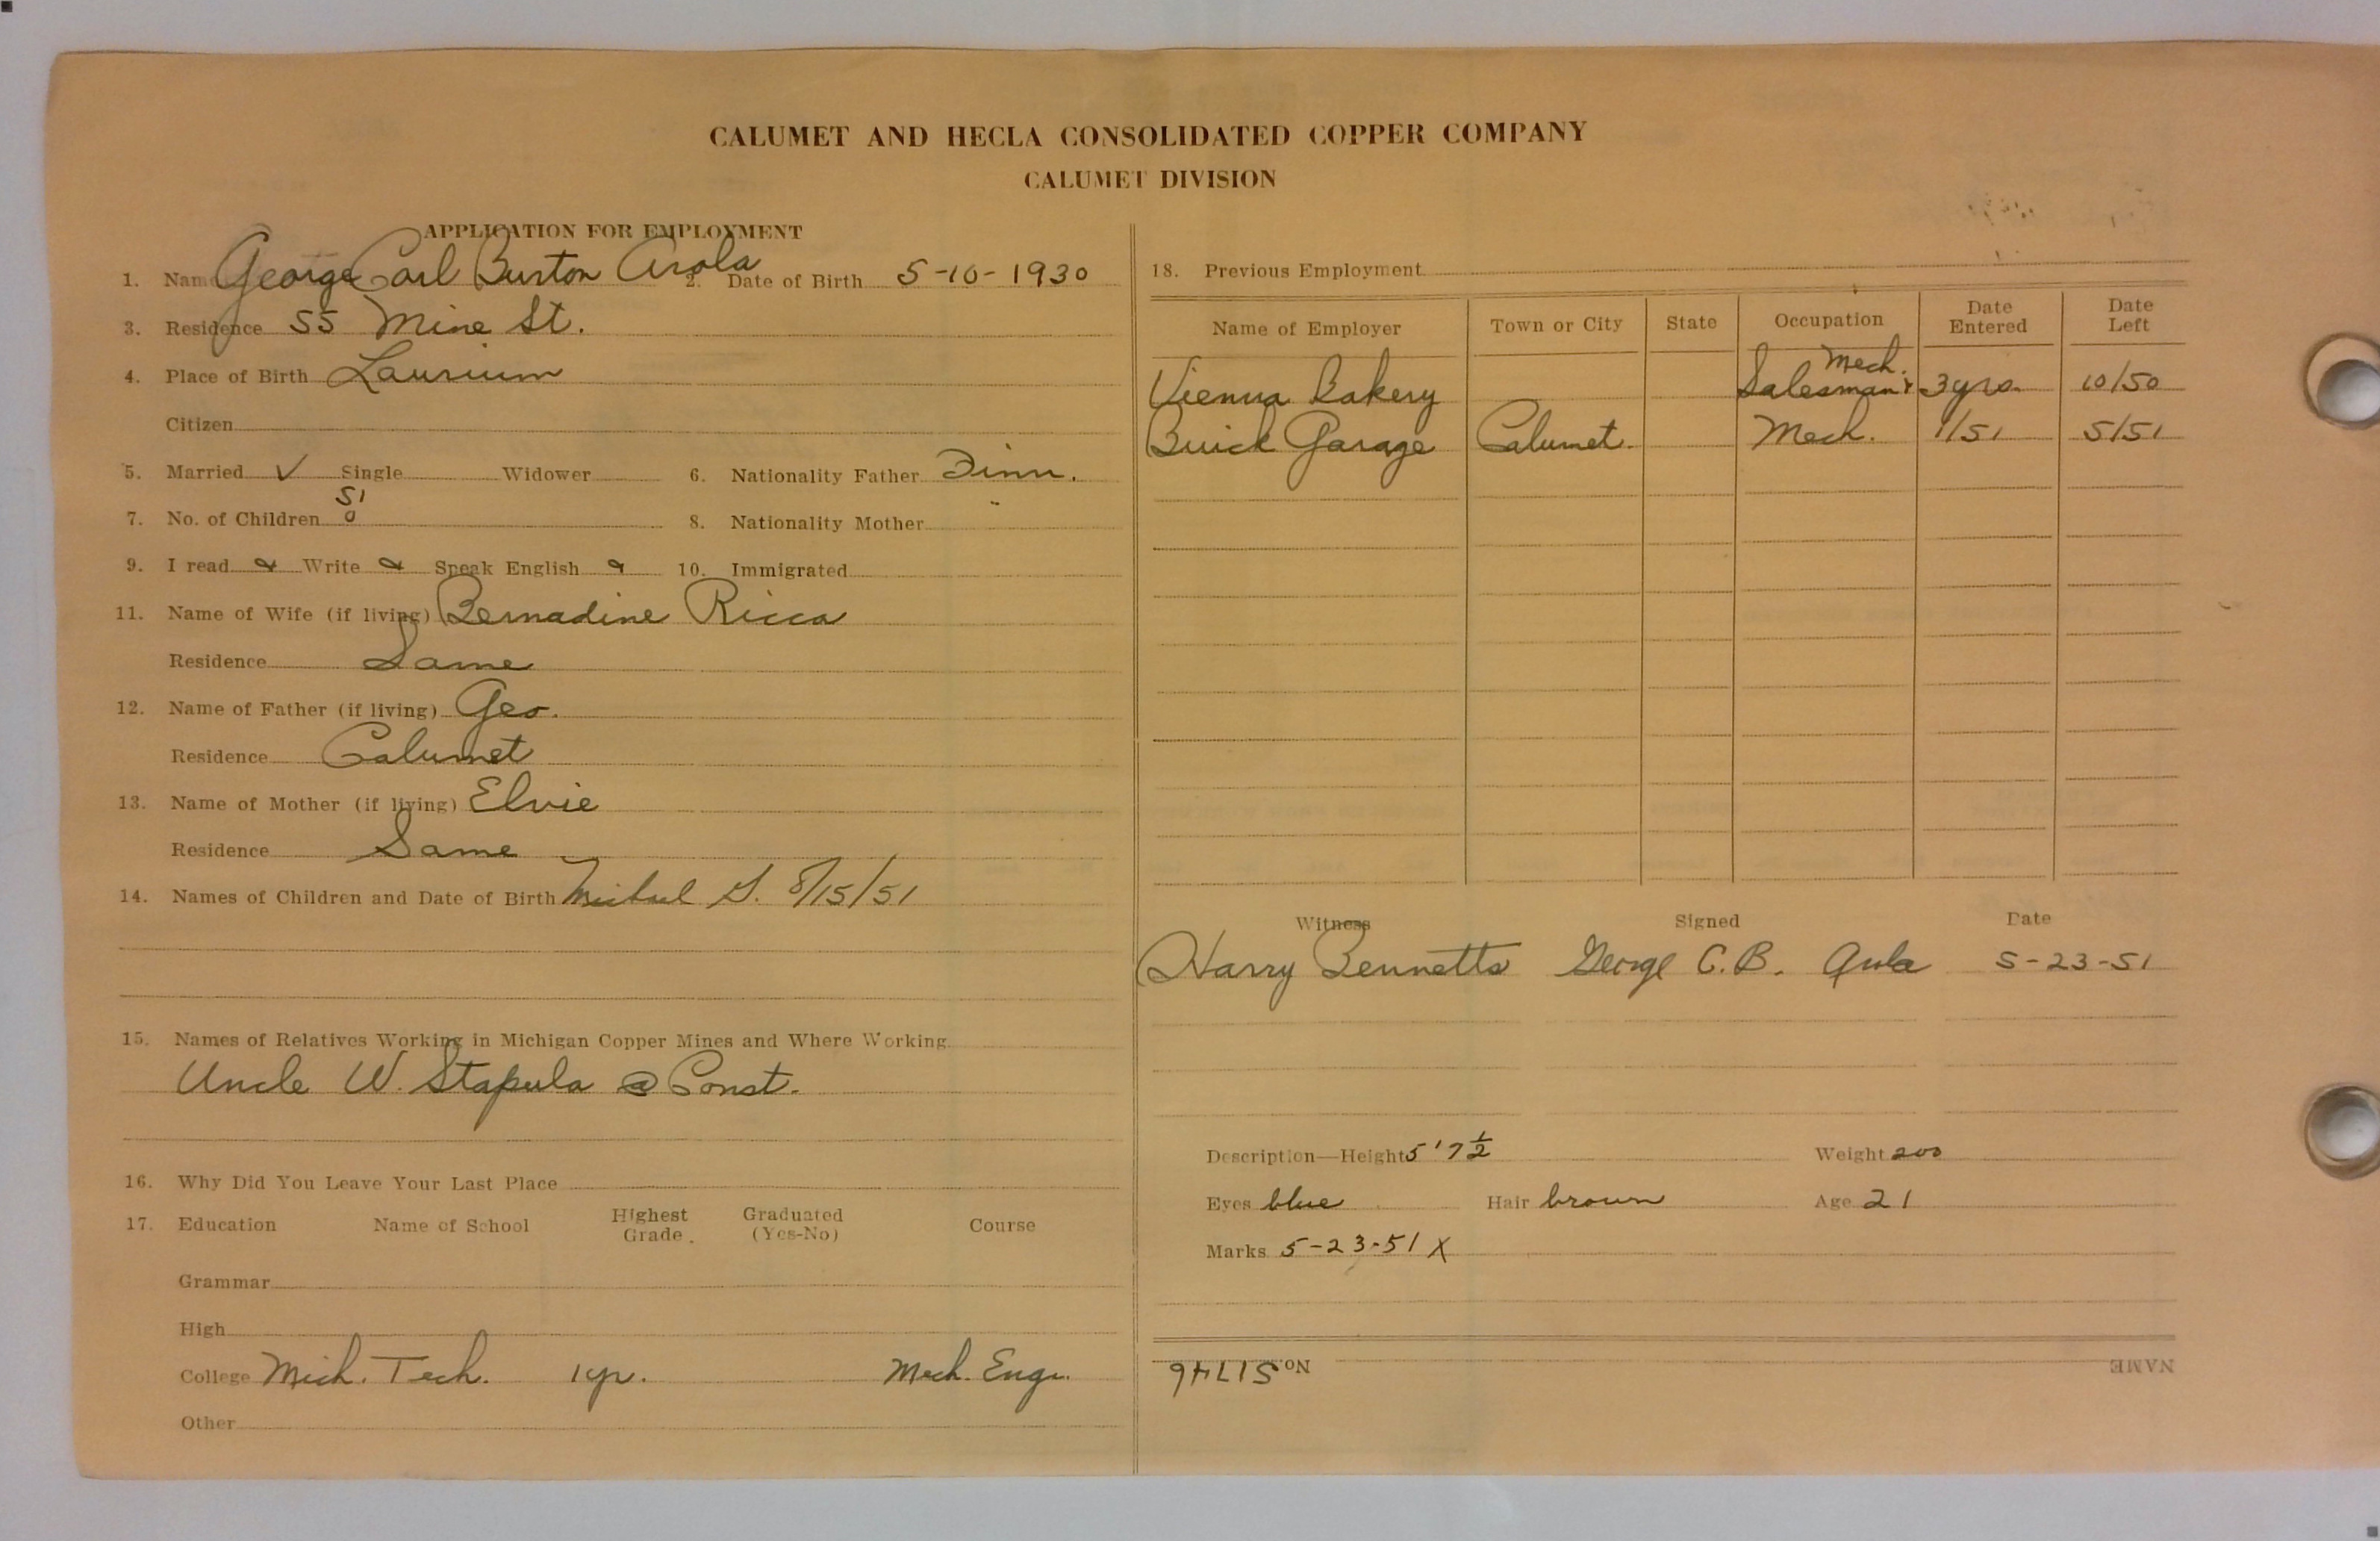 CALUMET AND HECLA CONSOLIDATED COPPER COMPANY
CALUMET DIVISION
APPLICATION FOR EMPLOYMENT
1. Name George Carl Burton Arola 2. Date of Birth 5-10-1930
3. Residence 55 Mine St.
4. Place of Birth Laurium
Citizen
5. Married ✓ Single Widower 6. Nationality Father Finn.
51
7. No. of Children 0 8. Nationality Mother "
9. I read Write Speak English 10. Immigrated
11. Name of Wife (if living) Bernadine Ricca
Residence Same
12. Name of Father (if living) Geo.
Residence Calumet
13. Name of Mother (if living) Elvie
Residence Same
14. Names of Children and Date of Birth S. 8/15/51
15. Names of Relatives Working in Michigan Copper Mines and Where Working
Uncle W. Stapula @ Const.
16. Why Did You Leave Your Last Place
17. Education Name of School Highest Grade. Graduated (Yes-No) Course
Grammar
High
College Mich. Tech. 1 yr. Mech. Engr.
Other
18. Previous Employment
Name of Employer Town or City State Occupation Date Entered Date Left
Mech.
Vienna Bakery Salesman & 3 yrs. 10/50
Buick Garage Calumet. Mech. 1/51 5/51
Witness Signed Date
Harry Bennetts George C. B. Arola 5-23-51
Description—Height 5'7½ Weight 200
Eyes blue Hair brown Age 21
Marks 5-23-51 X
NAME No. 51746